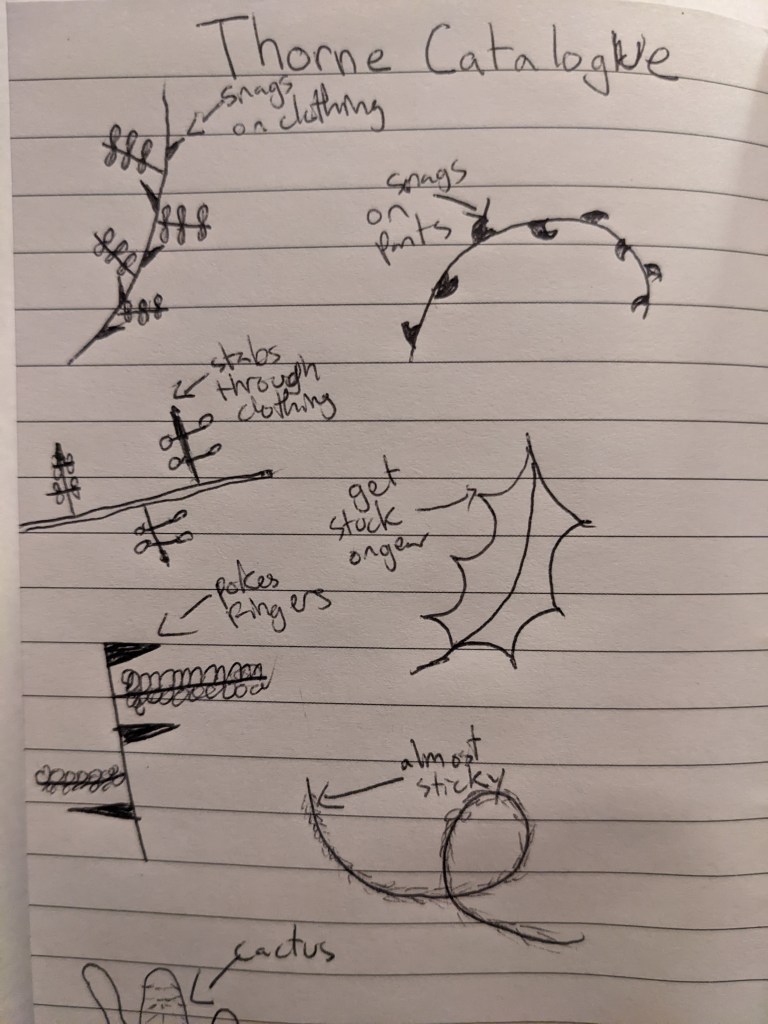 Thorne Catalogue
snags
on clothing
snags
on
pants
stabs
through
clothing
get
stuck
on gear
pokes
fingers
almost
sticky
cactus